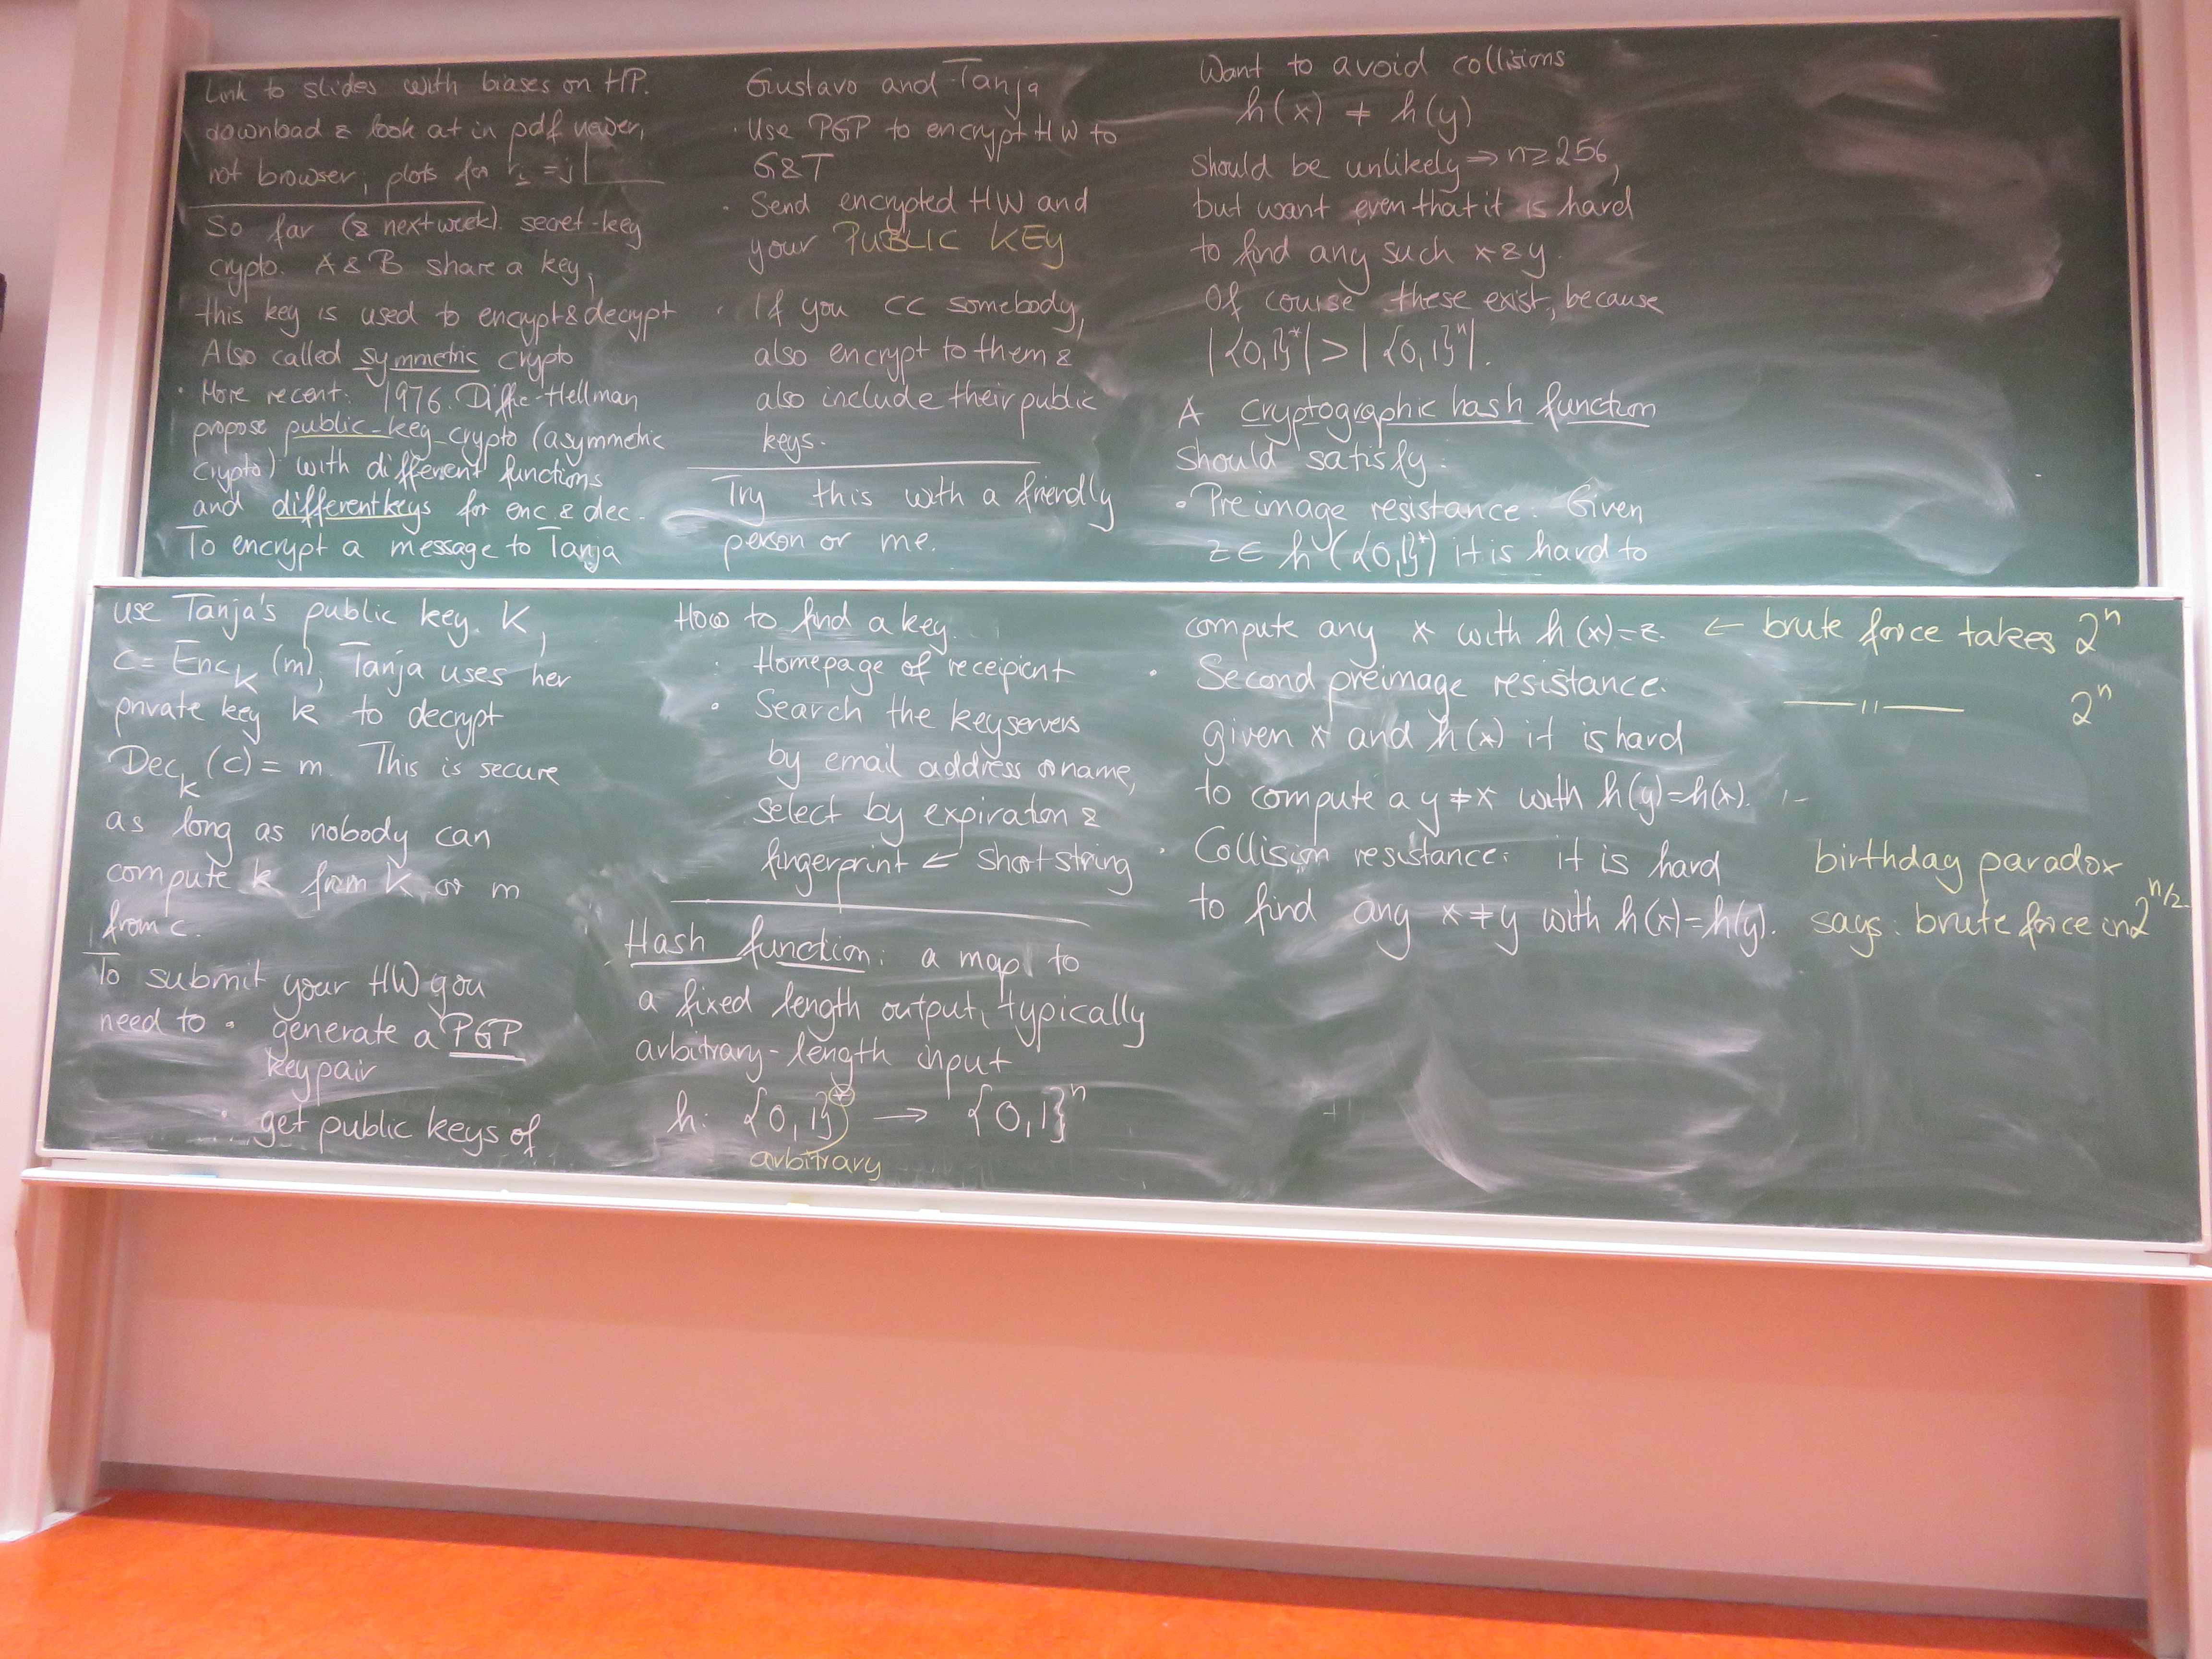 Link to slides with biases on HP.
download & look at in pdf viewer,
not browser; plots for r_i = j
So far (& next week). secret-key
crypto. A & B share a key,
this key is used to encrypt & decrypt
Also called symmetric crypto
· More recent: 1976. Diffie-Hellman
propose public-key-crypto (asymmetric
crypto) with different functions
and different keys for enc & dec.
To encrypt a message to Tanja
use Tanja's public key K,
C = Enc_K (m), Tanja uses her
private key k to decrypt
Dec_k (c) = m. This is secure
as long as nobody can
compute k from K or m
from c.
To submit your HW you
need to · generate a PGP
keypair
· get public keys of
Gustavo and Tanja
· Use PGP to encrypt HW to
G&T
· Send encrypted HW and
your PUBLIC KEY
· If you CC somebody,
also encrypt to them &
also include their public
keys.
Try this with a friendly
person or me.
How to find a key.
· Homepage of receipient
· Search the keyservers
by email address or name,
select by expiration &
fingerprint ← short string
Hash function: a map to
a fixed length output, typically
arbitrary-length input
h: {0,1}^* → {0,1}^n
arbitrary
Want to avoid collisions
h(x) ≠ h(y)
should be unlikely ⇒ n ≥ 256,
but want even that it is hard
to find any such x & y.
Of course these exist, because
|{0,1}^*| > |{0,1}^n|.
A cryptographic hash function
should satisfy:
· Preimage resistance: Given
z ∈ h({0,1}^*) it is hard to
compute any x with h(x)=z. ← brute force takes 2^n
· Second preimage resistance. —"— 2^n
given x and h(x) it is hard
to compute a y ≠ x with h(y)=h(x).
· Collision resistance: it is hard birthday paradox
to find any x ≠ y with h(x)=h(y). says: brute force in 2^{n/2}.